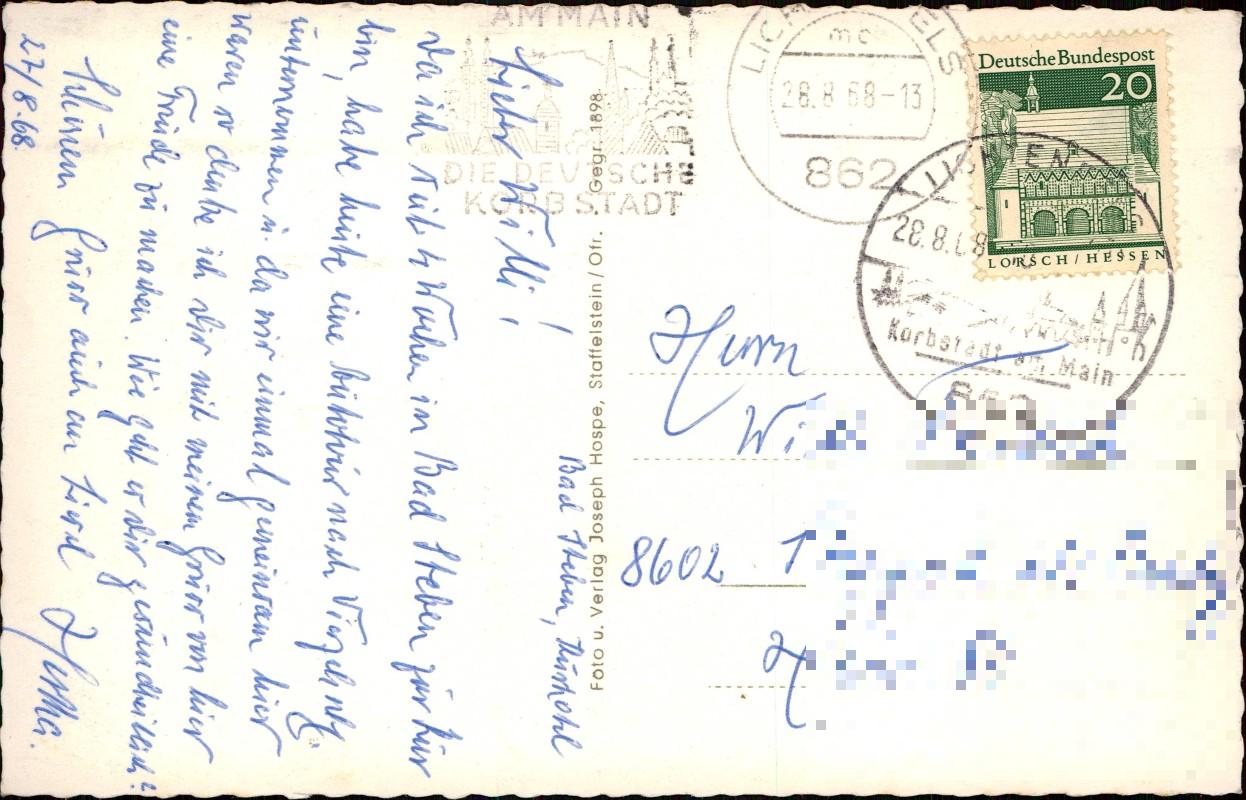 Bad Steben, Kurhotel
Lieber Willi!
Da ich seit 4 Wochen in Bad Steben zur Kur
bin, habe heute eine Autotour nach Vierzehnhlg.
unternommen u. da wir einmal gemeinsam hier
waren so denke ich Dir mit meinem Gruss von hier
eine Freude zu machen. Wie geht es Dir gesundheitlich?
27/8.68. Schönen Gruss auch an
Foto u. Verlag Joseph Hospe, Staffelstein / Ofr. Gegr. 1898
AM MAIN
DIE DEUTSCHE
KORBSTADT
LICH ELS
mc
28.8 68-13
862
Deutsche Bundespost
20
LORSCH / HESSEN
LICHTEN
28.8.68
Korbstadt am Main
862
Herrn
Wi
8602